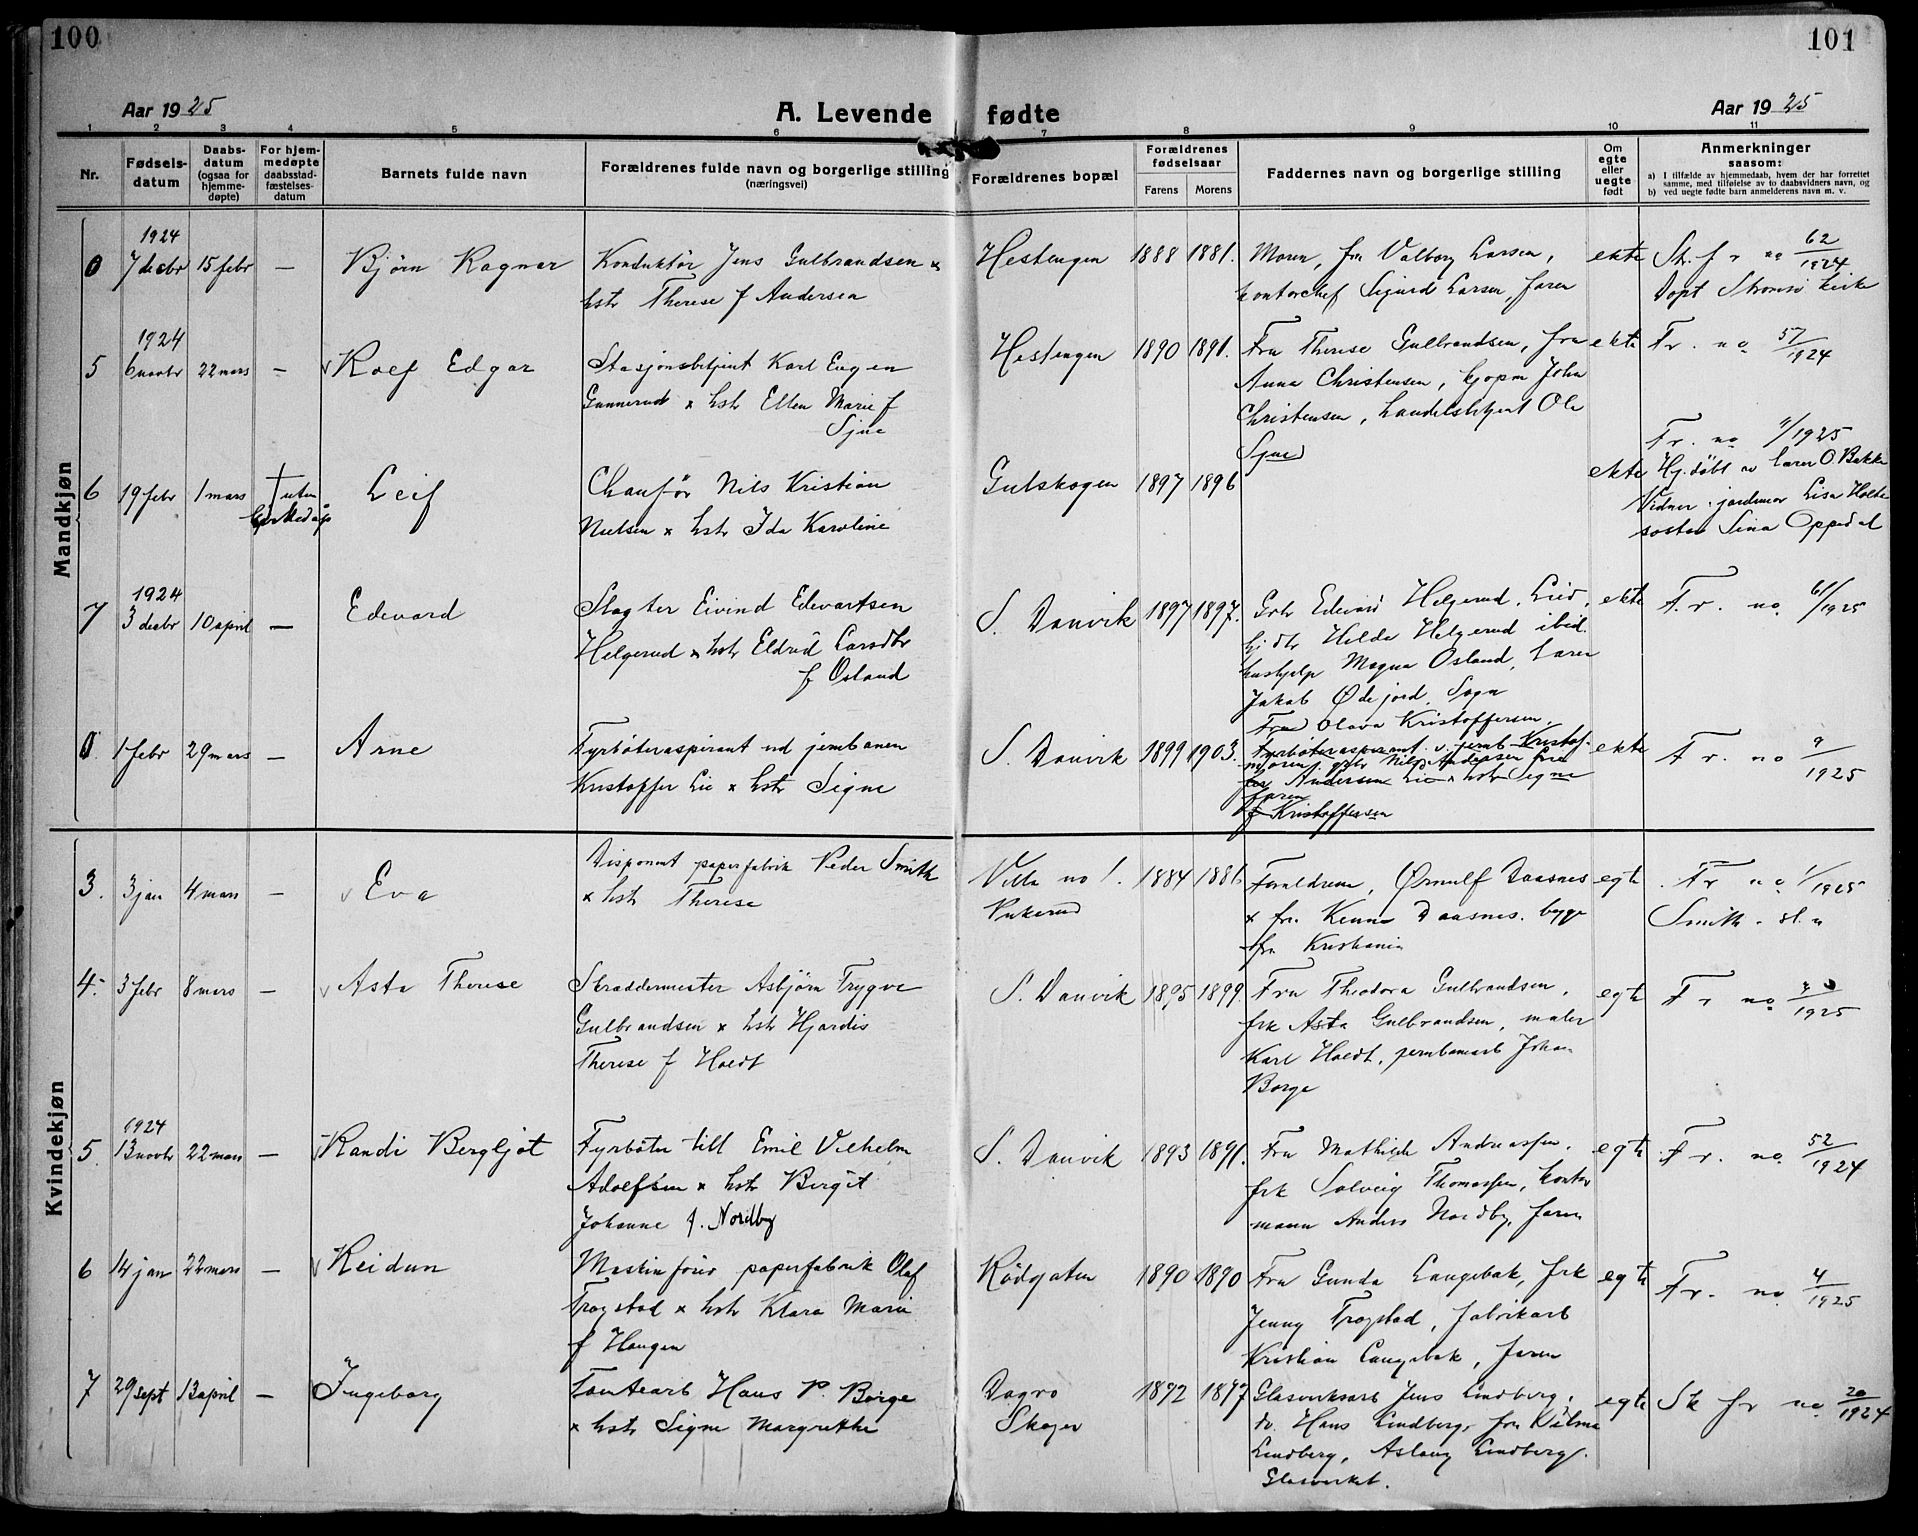 100
101
Aar 1925
A. Levende fødte
Aar 1925
1 2 3 4 5 6 7 8 9 10 11
Nr.
Fødsels-
datum
Daabs-
datum
(ogsaa for
hjemme-
døpte)
For hjem-
medøpte
daabsstad-
fæstelses-
datum
Barnets fulde navn
Forældrenes fulde navn og borgerlige stilling
(næringsvei)
Forældrenes bopæl
Forældrenes
fødselsaar
Farens
Morens
Faddernes navn og borgerlige stilling
Om
egte
eller
uegte
født
Anmerkninger
saasom:
a) I tilfælde av hjemmedaab, hvem der har forrettet
samme, med tilføielse av to daabsvidners navn, og
b) ved uegte fødte barn anmelderens navn m. v.
Mandkjøn
0 1924 7 decbr 15 febr — Bjørn Ragnar
Konduktør Jens Gulbrandsen x
hstr Therese f Andersen
Hestengen 1888 1881.
Moren, fru Valborg Larsen,
kontorchef Sigurd Larsen, faren
ekte
St. f r no 62/1924
Døpt Strømsø kirke
5 1924 6 novbr 22 mars — Rolf Edgar
Stasjonsbetjent Karl Eugen
Gunnerud x hstr Ellen Marie f
Syne
Hestengen 1890 1891.
Fru Therese Gulbrandsen, fru
Anna Christensen, kjøpm John
Christensen, handelsbetjent Ole
Syne
ekte
Fr. no 57/1924
6 19 febr 1 mars uten Leif
Chauffør Nils Kristian
Nielsen x hstr Ida Karoline
Gulskogen 1897 1896
ekte
Fr. no 11/1925
Hj.døbt av lærer O. Bakke
Vidner: jordmor Lisa Holte
søster Sina Oppedal
7 1924 3 decbr 10 april — Edevard
Slagter Eivind Edevartsen
Helgerud x hstr Eldrid Larsdtr
f Osland
S. Danvik 1897 1897.
Gbr Edevard Helgerud, Lier,
hj.dtr Helda Helgerud ibid.
hushjelp Magna Osland, lærer
Jakob Ødejord, Sogn
ekte
F. r. no 61/1925
0 1 febr 29 mars — Arne
Fyrbøteraspirant ved jernbanen
Kristoffer Lie x hstr Signe
S. Danvik 1899 1903.
Frue Olava Kristoffersen,
Fyrbøteraspirant v. jernb Kristof-
Andersen Lie x hstr Signe
faren
f Kristoffersen
ekte
F r. no 9/1925
Kvindekjøn
3. 3 jan 4 mars — Eva
Disponent papirfabrik Peder Smith
x hstr Therese
Villa no 1.
1884 1886
Forældrene, Ørnulf Daasnes
x fru Kenna Daasnes. begge
fra Kristiania
egte
Fr no 1/1925
4. 3 febr 8 mars — Asta Therese
Skræddermester Asbjørn Trygve
Gulbrandsen x hstr Hjørdis
Therese f Hoedt
S. Danvik 1895 1899.
Fru Theodora Gulbrandsen,
frk Asta Gulbrandsen, maler
Karl Hoedt, jernbanearb Johan
Borge
egte
F r no
1925
5. 1924 13 novbr 22 mars — Randi Bergljot
Fyrbøter till Emil Vilhelm
Adolfsen x hstr Birgit
Johanne f. Nordby
S. Danvik 1893 1891.
Fru Mathilde Andreassen,
frk Solveig Thomassen, kontor
mann Anders Nordby, faren
egte
Fr. no. 52/1924
6 14 jan 22 mars — Reidun
Maskinfører papirfabrik Olaf
Trogstad x hstr Klara Marie
f Haugen
Rødgaten 1890 1890
Fru Gunda Langebak, frk
Jenny Trogstad, fabrikarb
Kristian Langebak, faren
egte
Fr. no. 4/1925
7 29 sept 13 april — Ingeborg
Tomtearb Hans P. Borge
x hstr Signe Margrethe
Skoger
1892 1897
Glasverksarb Jens Lindberg,
do. Hans Lindberg, fru Vilma
Lindberg, Aslaug Lindberg.
Glasverket.
egte
Sk fr no. 20/1924